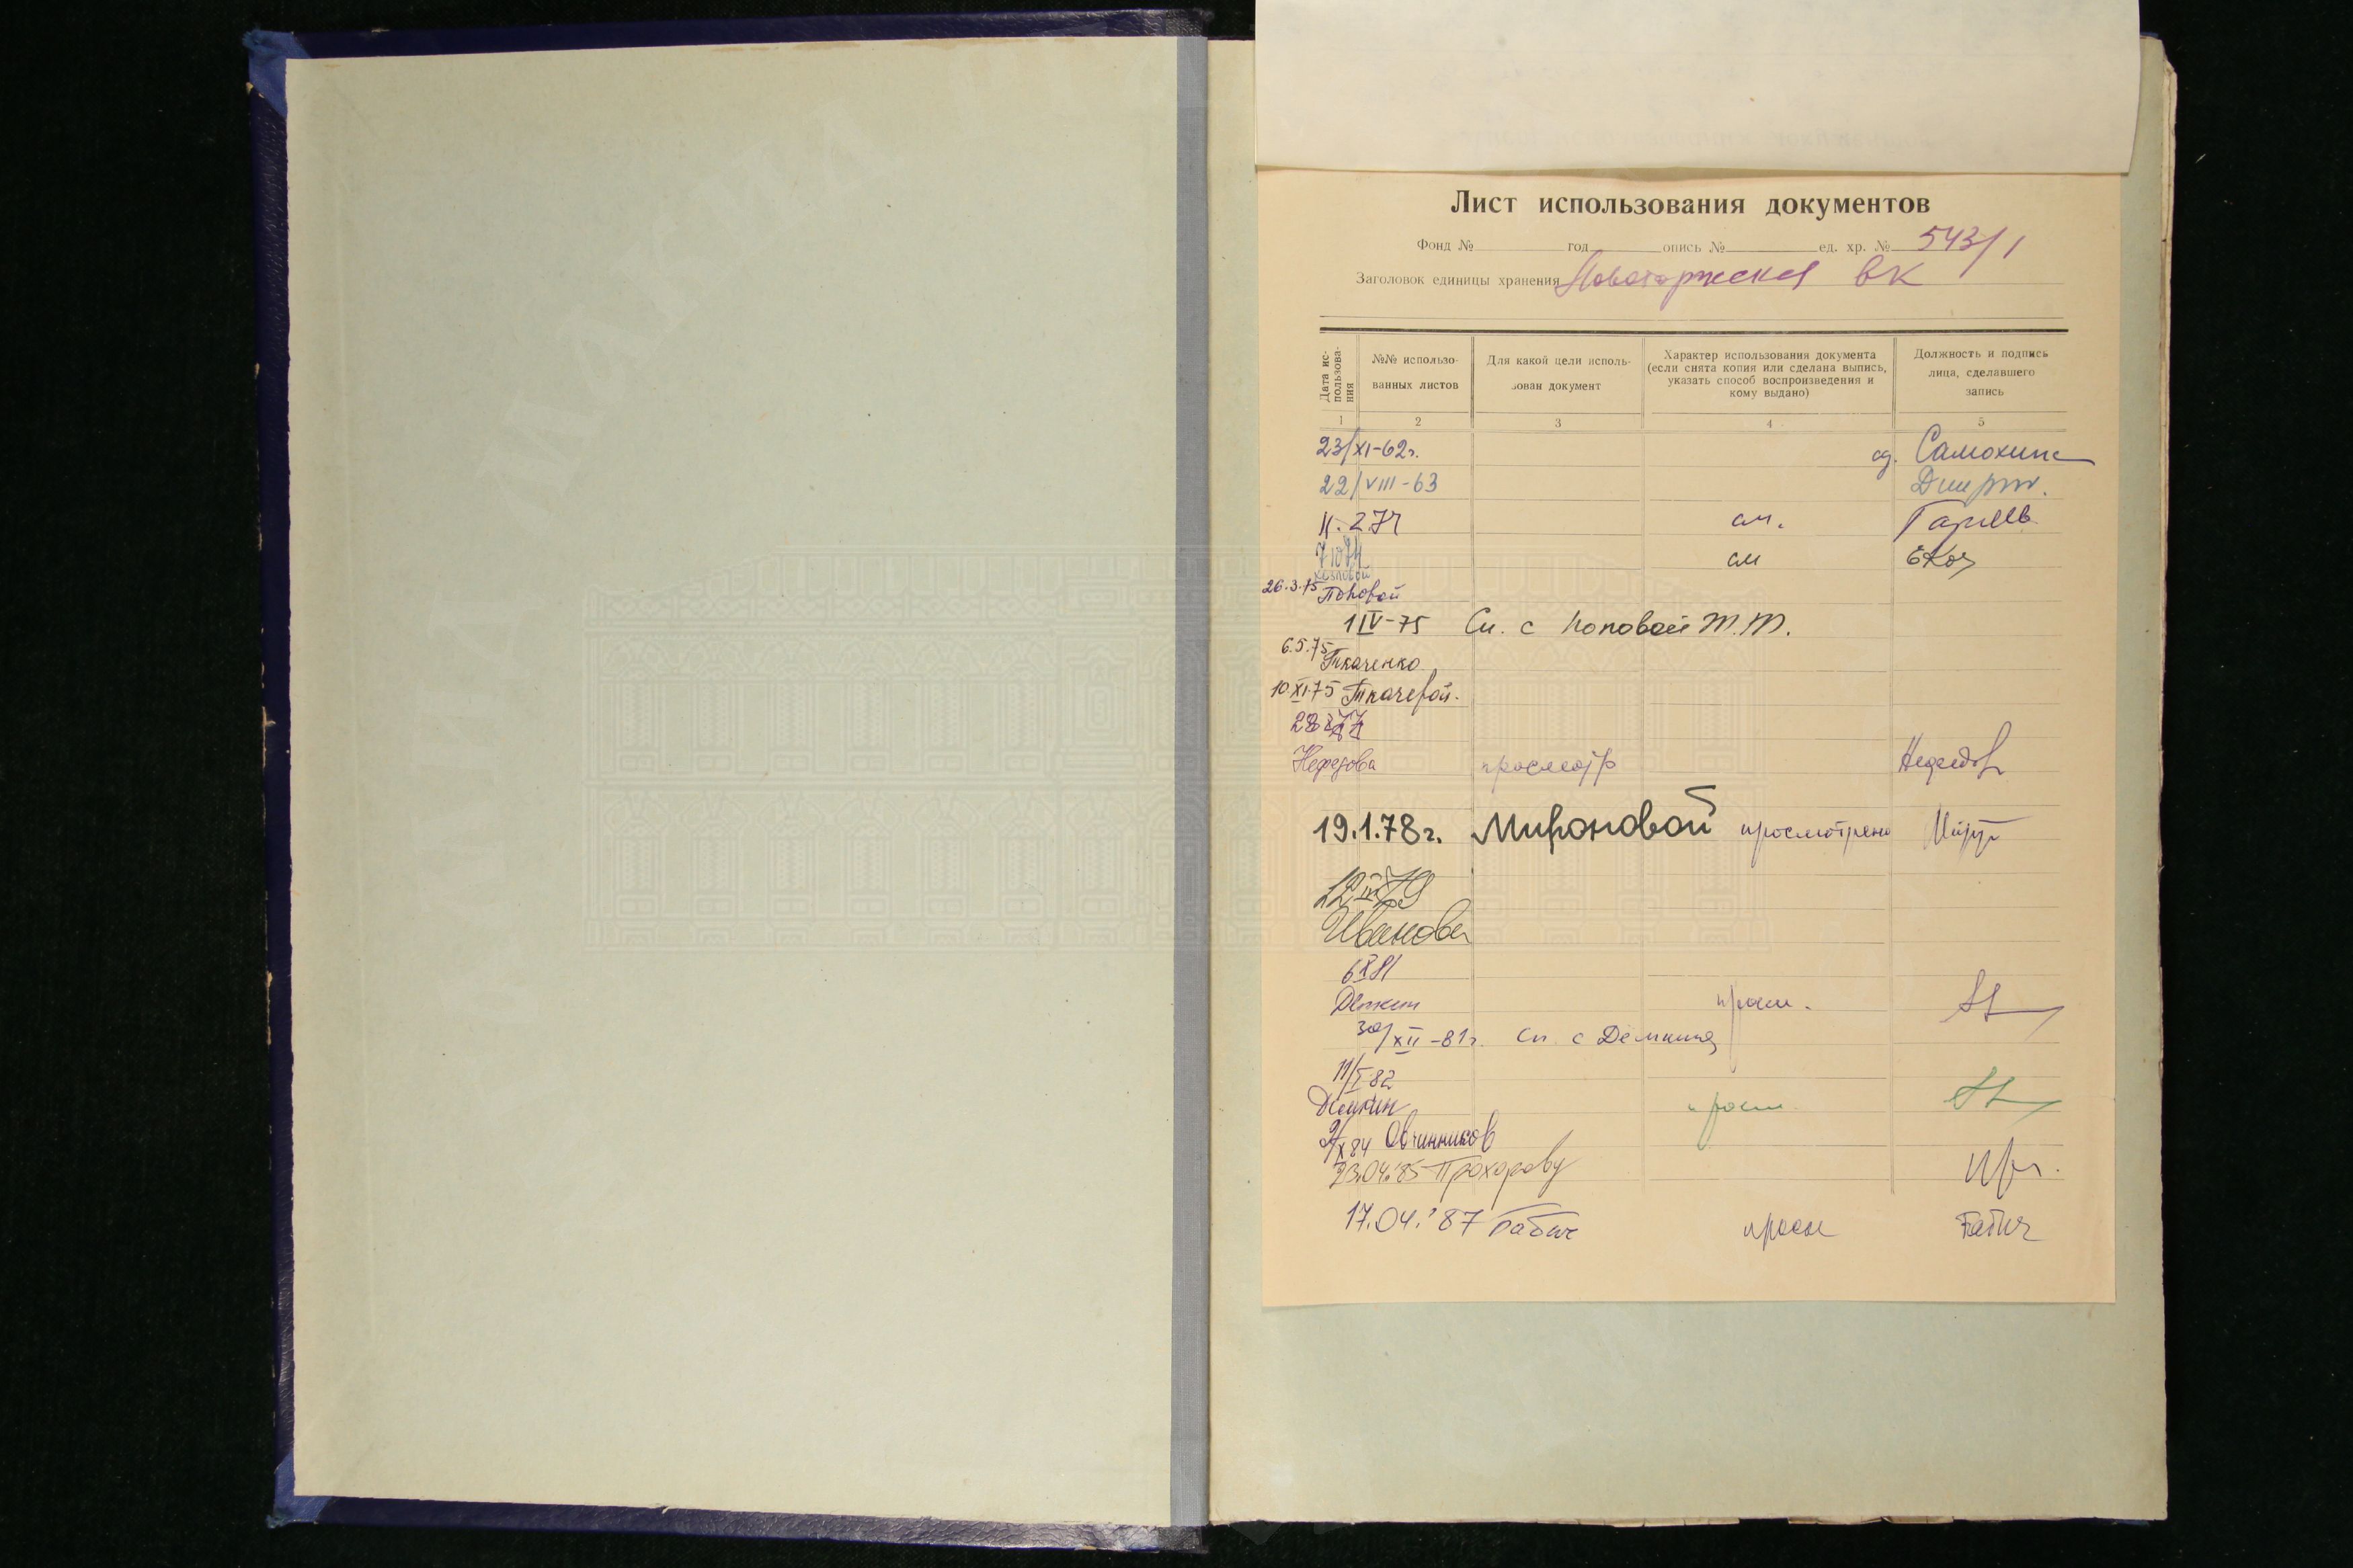 Лист использования документов
Фонд № год опись № ед. хр. № 543/1
Заголовок единицы хранения Новоторжская ВК
Дата ис-
пользова-
ния
№№ использо-
ванных листов
Для какой цели исполь-
зован документ
Характер использования документа
(если снята копия или сделана выпись,
указать способ воспроизведения и
кому выдано)
Должность и подпись
лица, сделавшего
запись
1 2 3 4 5
23/XI-62г. Самохина
22/VIII-63
11.2 74 см.
см
26.3.75 Поповой
1 IV-75 Сн. с Поповой Т.Т.
6.5.75 Ткаченко
10.XI.75 Ткачевой.
просмотр
19.1.78г. Мироновой просмотрено
Иванова
6 X 81
просм.
30/XII-81г. Сн. с Дёмкина
11/I-82
Дёмкин просм.
X 84 Овчинников
23.04.85 Прохорову
17.04.'87 Бабич просм Бабич